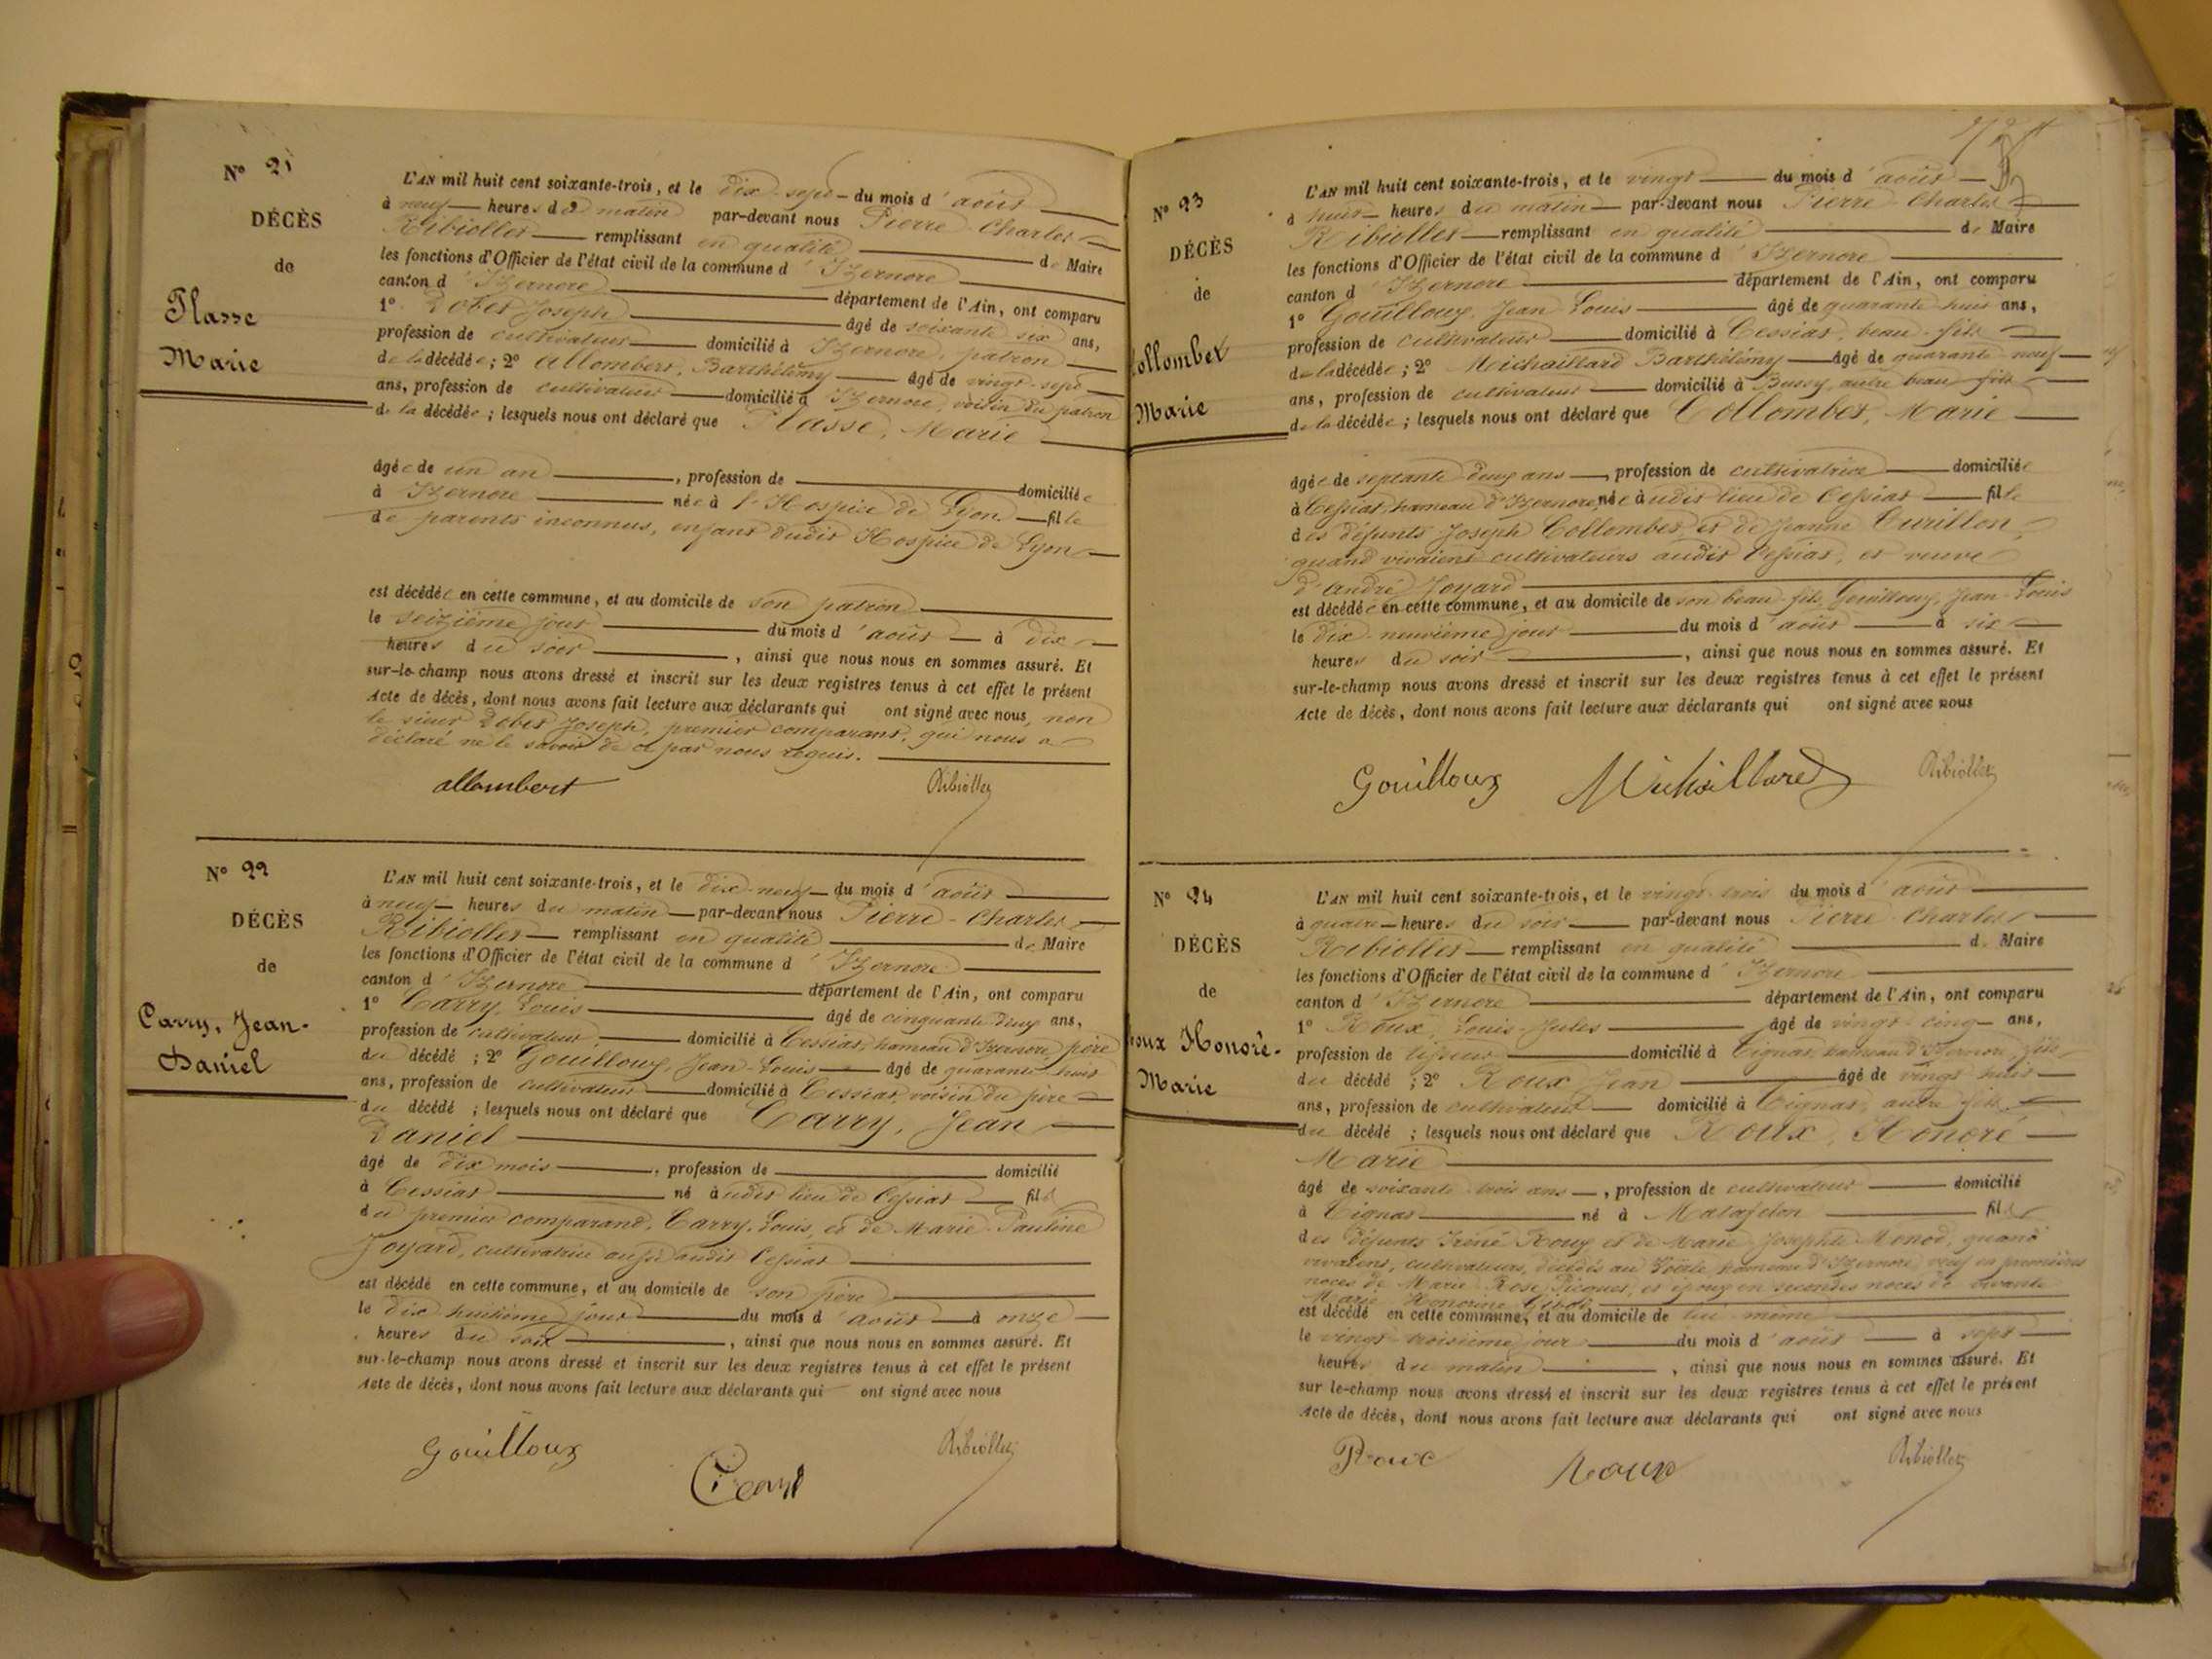 N° 21
DÉCÈS
de
Plasse
Marie
L'AN mil huit cent soixante-trois, et le dix-sept du mois d'août
à neuf heures du matin par-devant nous Pierre-Charles
Ribiollet remplissant en qualité de Maire
les fonctions d'Officier de l'état civil de la commune d'Izernore
canton d'Izernore département de l'Ain, ont comparu
1° Dobet Joseph âgé de soixante six ans,
profession de cultivateur domicilié à Izernore, patron
de la décédée; 2° Allombert, Barthélémy âgé de vingt-sept
ans, profession de cultivateur domicilié à Izernore, voisin du patron
de la décédée; lesquels nous ont déclaré que Plasse, Marie
âgée de un an, profession de domiciliée
à Izernore née à l'Hospice de Lyon fille
de parents inconnus, enfant dudit Hospice de Lyon
est décédée en cette commune, et au domicile de son patron
le seizième jour du mois d'août à dix
heures du soir, ainsi que nous nous en sommes assuré. Et
sur-le-champ nous avons dressé et inscrit sur les deux registres tenus à cet effet le présent
Acte de décès, dont nous avons fait lecture aux déclarants qui ont signé avec nous, non
le sieur Dobet Joseph, premier comparant, qui nous a
déclaré ne le savoir de ce par nous requis.
allombert Ribiollet
N° 22
DÉCÈS
de
Carry, Jean-
Daniel
L'AN mil huit cent soixante-trois, et le dix-neuf du mois d'août
à neuf heures du matin par-devant nous Pierre-Charles
Ribiollet remplissant en qualité de Maire
les fonctions d'Officier de l'état civil de la commune d'Izernore
canton d'Izernore département de l'Ain, ont comparu
1° Carry, Louis âgé de cinquante deux ans,
profession de cultivateur domicilié à Cessiat, hameau d'Izernore, père
du décédé; 2° Gouilloux, Jean-Louis âgé de quarante-huit
ans, profession de cultivateur domicilié à Cessiat, voisin du père
du décédé; lesquels nous ont déclaré que Carry, Jean
Daniel
âgé de dix mois, profession de domicilié
à Cessiat né audit lieu de Cessiat fils
du premier comparant, Carry, Louis, et de Marie-Pauline
Joyard, cultivatrice aussi audit Cessiat
est décédé en cette commune, et au domicile de son père
le dix huitième jour du mois d'août à onze
heures du soir, ainsi que nous nous en sommes assuré. Et
sur-le-champ nous avons dressé et inscrit sur les deux registres tenus à cet effet le présent
Acte de décès, dont nous avons fait lecture aux déclarants qui ont signé avec nous
Gouilloux Ribiollet
N° 23
DÉCÈS
de
ollombet
Marie
L'AN mil huit cent soixante-trois, et le vingt du mois d'août
à huit heures du matin par-devant nous Pierre-Charles
Ribiollet remplissant en qualité de Maire
les fonctions d'Officier de l'état civil de la commune d'Izernore
canton d'Izernore département de l'Ain, ont comparu
1° Gouilloux, Jean Louis âgé de quarante-huit ans,
profession de cultivateur domicilié à Cessiat, beau-fils
de la décédée; 2° Michaillard Barthélémy âgé de quarante-neuf
ans, profession de cultivateur domicilié à Bussy, autre beau-fils
de la décédée; lesquels nous ont déclaré que Collombet, Marie
âgée de septante deux ans, profession de cultivatrice domiciliée
à Cessiat, hameau d'Izernore, née audit lieu de Cessiat fille
des défunts Joseph Collombet et de Jeanne Curillon,
quand vivaient cultivateurs audit Cessiat, et veuve
d'André Joyard
est décédée en cette commune, et au domicile de son beau-fils, Gouilloux, Jean-Louis
le dix-neuvième jour du mois d'août à six
heures du soir, ainsi que nous nous en sommes assuré. Et
sur-le-champ nous avons dressé et inscrit sur les deux registres tenus à cet effet le présent
Acte de décès, dont nous avons fait lecture aux déclarants qui ont signé avec nous
Gouilloux Michaillard Ribiollet
N° 24
DÉCÈS
de
oux Honoré-
Marie
L'AN mil huit cent soixante-trois, et le vingt-trois du mois d'août
à quatre heures du soir par-devant nous Pierre-Charles
Ribiollet remplissant en qualité de Maire
les fonctions d'Officier de l'état civil de la commune d'Izernore
canton d'Izernore département de l'Ain, ont comparu
1° Roux, Louis-Jules âgé de vingt-cinq ans,
profession de domicilié à Tignat, hameau d'Izernore, fils
du décédé; 2° Roux Jean âgé de vingt huit
ans, profession de cultivateur domicilié à Tignat, autre fils
du décédé; lesquels nous ont déclaré que Roux, Honoré
Marie
âgé de soixante-trois ans, profession de cultivateur domicilié
à Tignat né à Matafelon fils
des défunts Iréné Roux et de Marie-Josephte Monod, quand
vivaient, cultivateurs, décédés au hameau d'Izernore, veuf en premières
noces de Marie-Rose Picquet, et époux en secondes noces de vivante
Marie Honorine
est décédé en cette commune, et au domicile de lui-même
le vingt-troisième jour du mois d'août à sept
heures du matin, ainsi que nous nous en sommes assuré. Et
sur le-champ nous avons dressé et inscrit sur les deux registres tenus à cet effet le présent
Acte de décès, dont nous avons fait lecture aux déclarants qui ont signé avec nous
Roux Roux Ribiollet